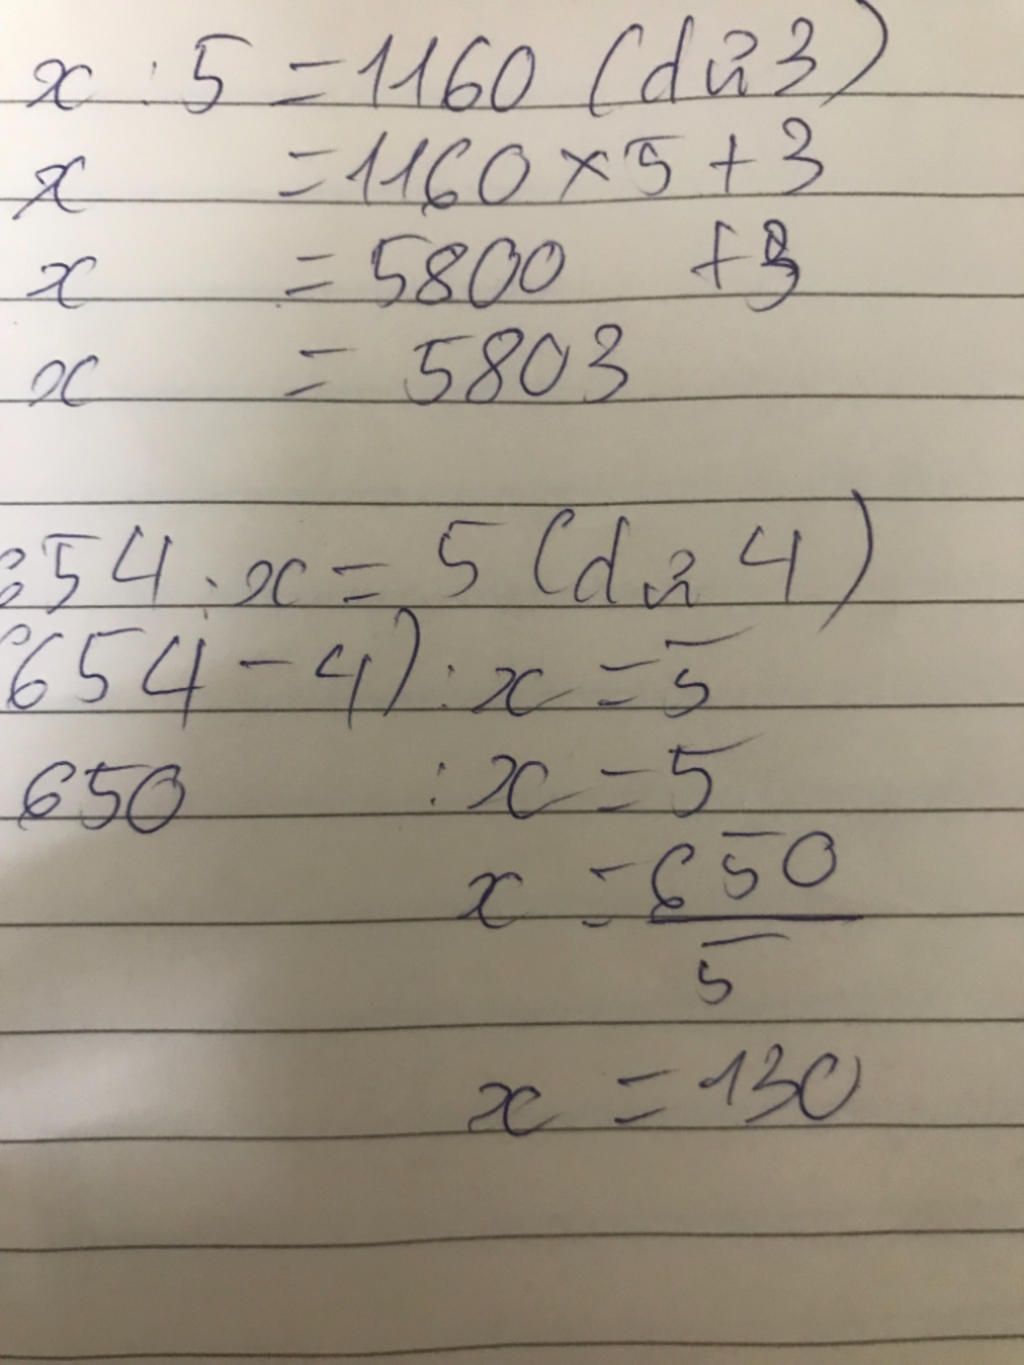 x : 5 = 1160 (dư 3)
x = 1160 × 5 + 3
x = 5800 + 3
x = 5803
654 : x = 5 (dư 4)
(654 - 4) : x = 5
650 : x = 5
x = 650
5
x = 130